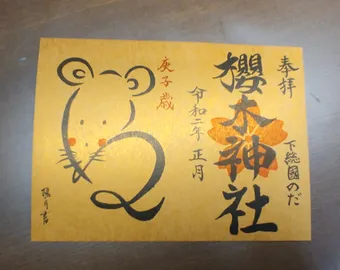 奉拝
下総國のだ
櫻木神社
令和二年正月
庚子歳